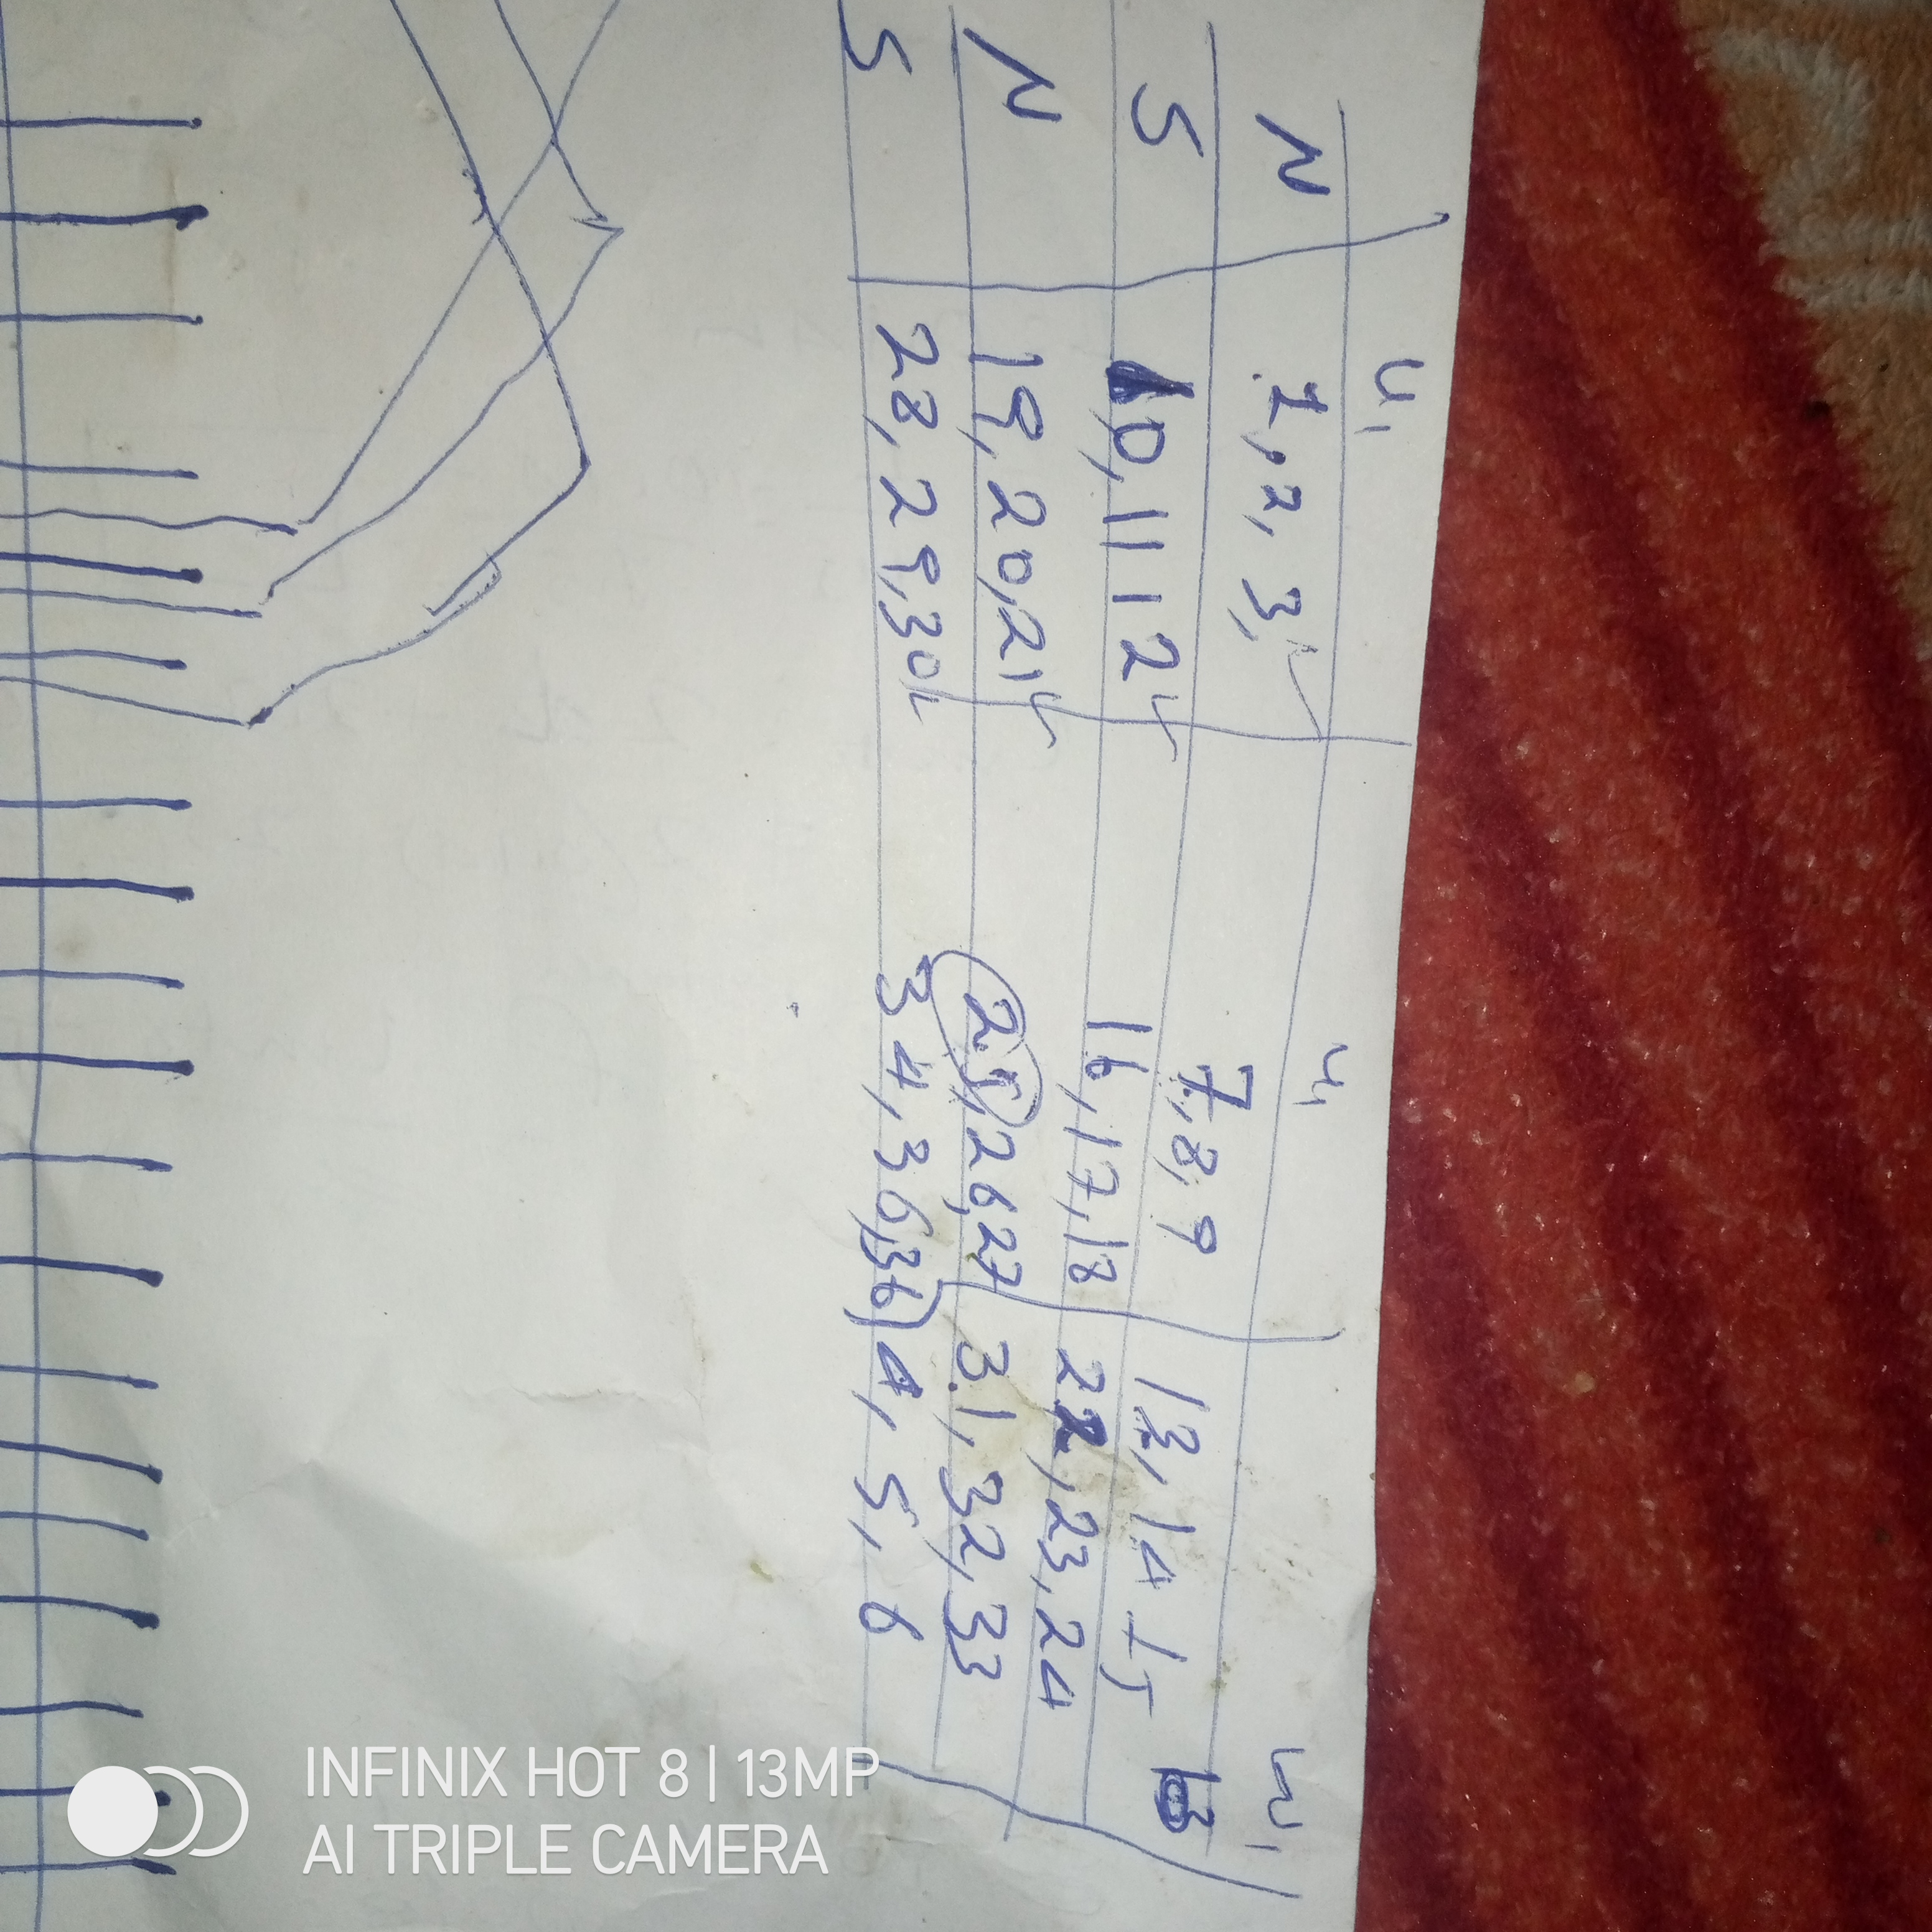 U1 U1 W1
N 1, 2, 3, 7, 8, 9 13, 14 15
S 10, 11 12 16, 17, 18 22, 23, 24
N 19, 20, 21 25, 26, 27 31, 32, 33
S 28, 29, 30 34, 36, 36 4, 5, 6
INFINIX HOT 8 | 13MP
AI TRIPLE CAMERA